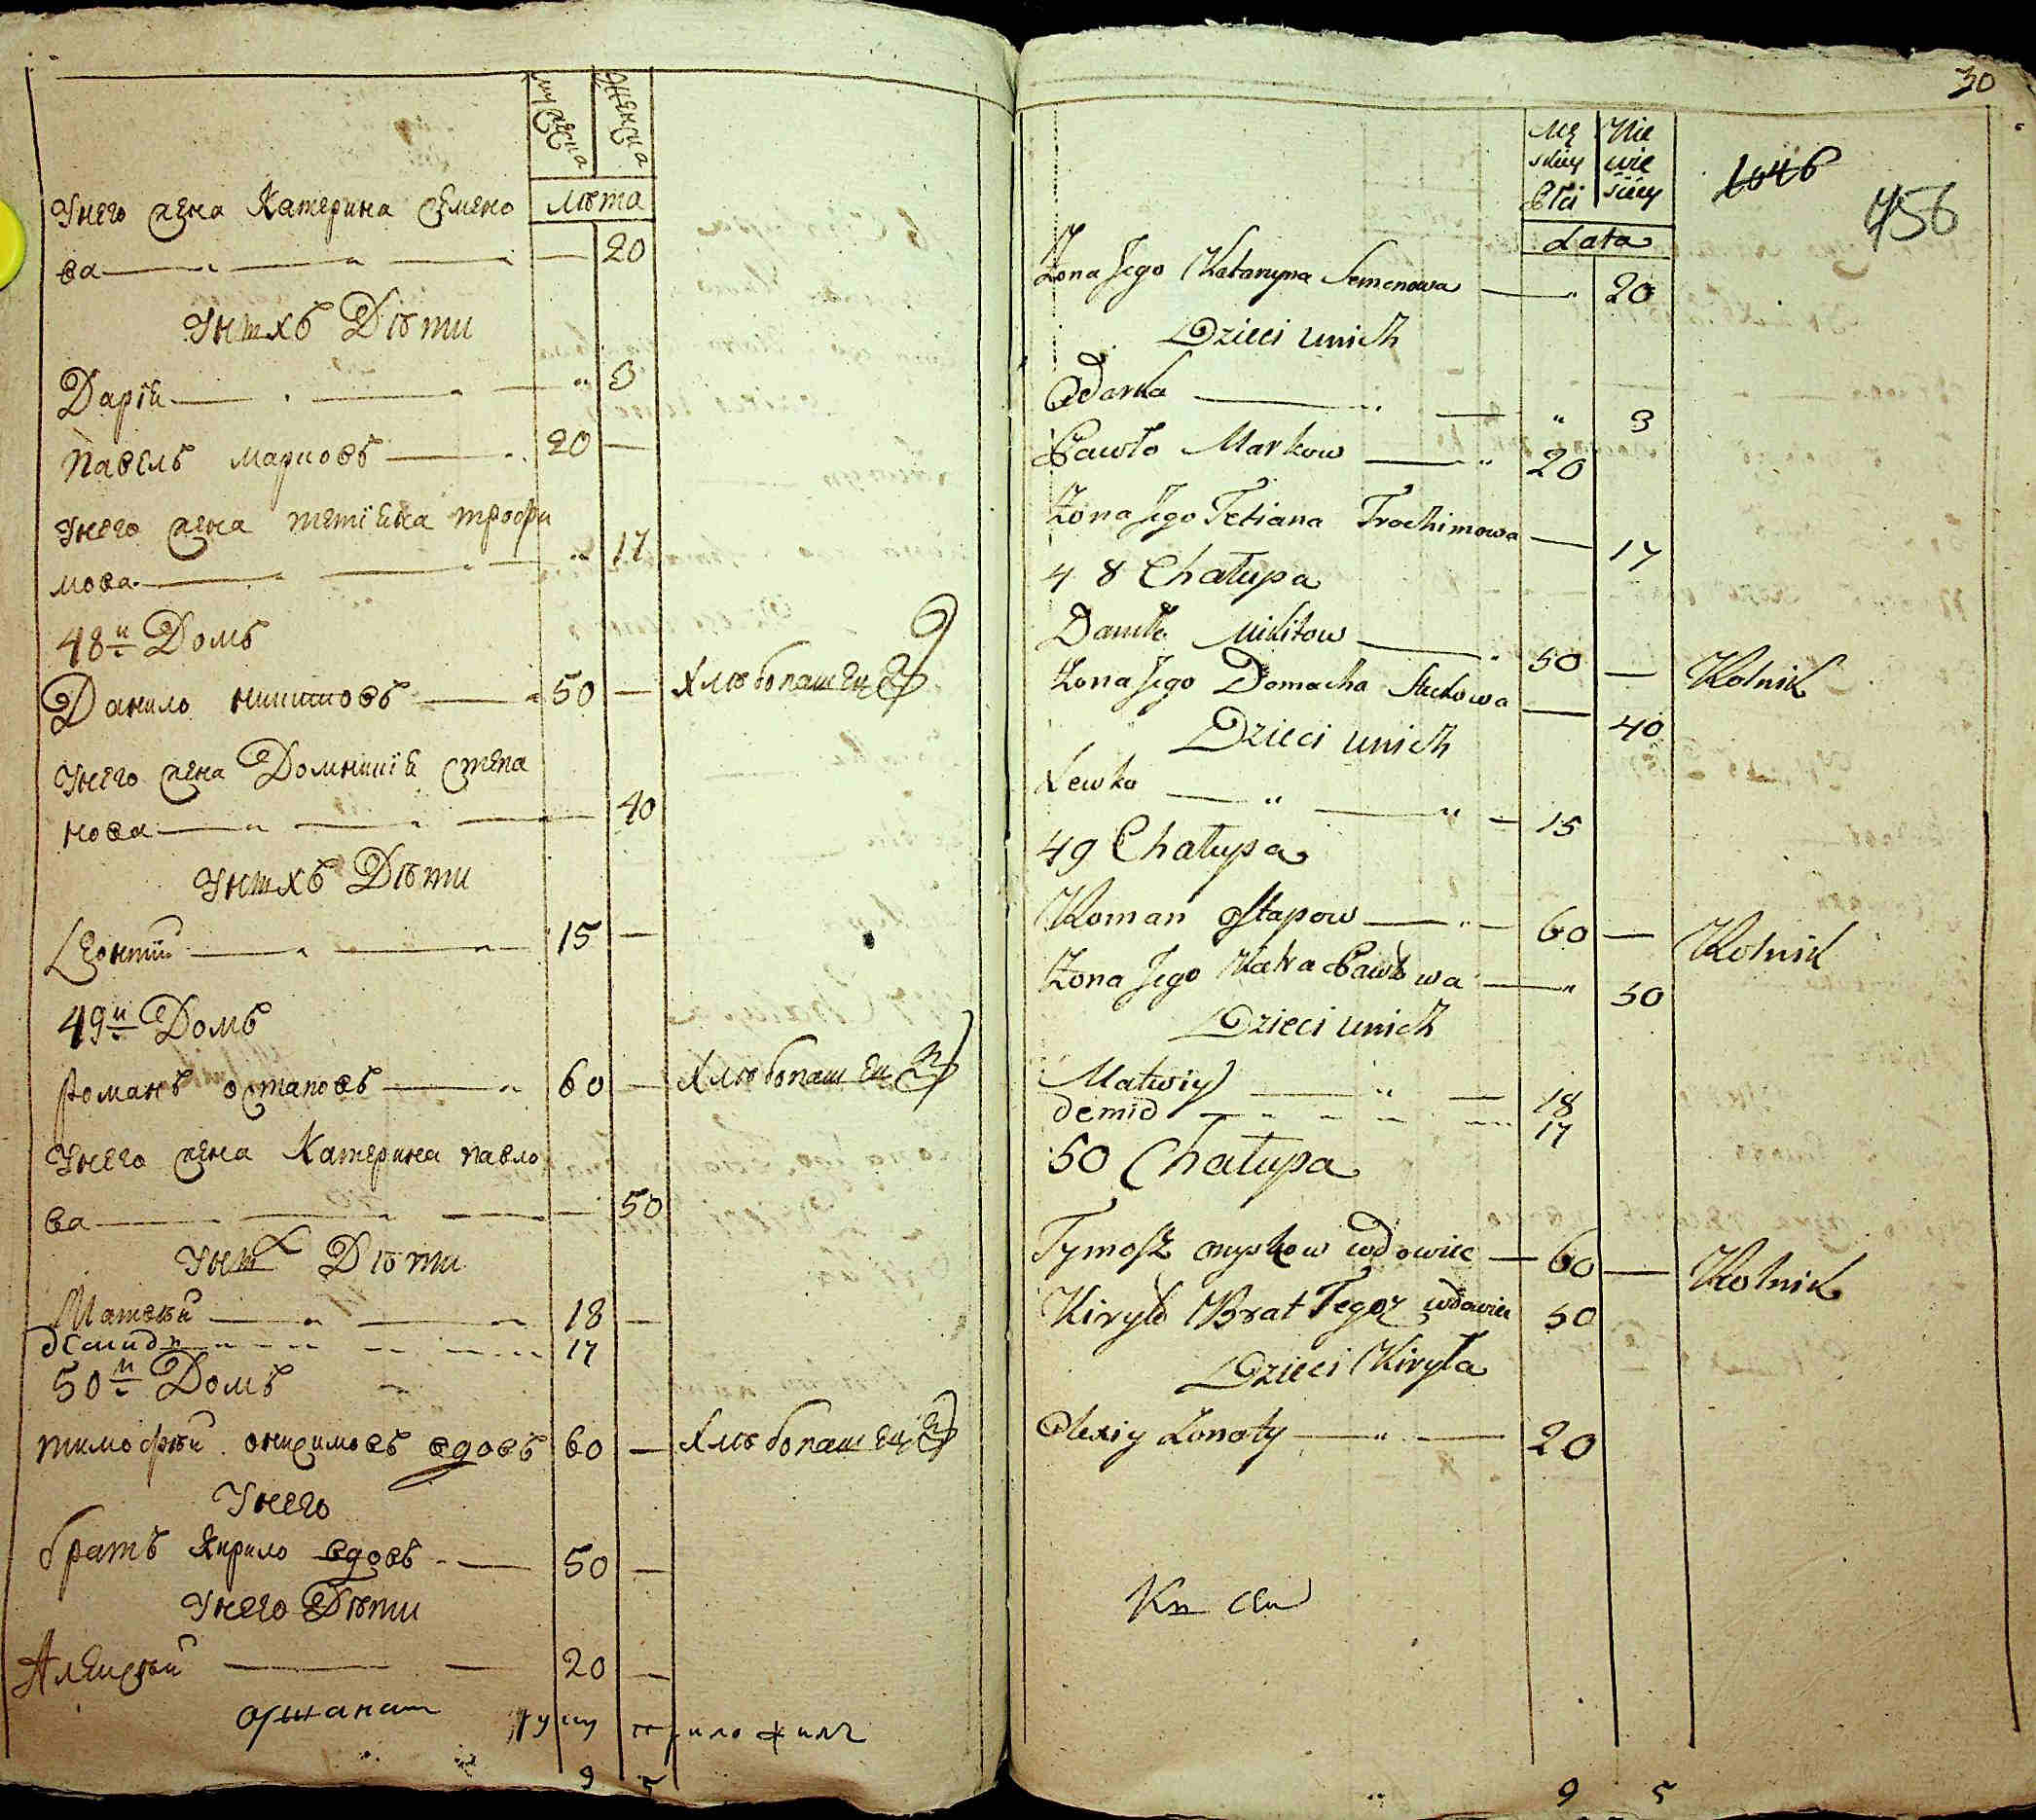 мужеска женска
лѣта
У него жена Катерина Семено
ва 20
У них Дѣти
Дарія 3
Павелъ Марковъ 20
У него жена Тетіяна Трофи
мова 17
48й Домъ
Данило Никитовъ 50 Хлѣбопашец
У него жена Домникія Степа
нова 40
У них Дѣти
Леонтій 15
49й Домъ
Романъ Остаповъ 60 Хлѣбопашец
У него жена Катерина Павло
ва 50
У них Дѣти
Матвѣй 18
Демидъ 17
50й Домъ
Тимофѣй Онисимовъ вдовъ 60 Хлѣбопашец
У него
братъ Кирило вдовъ 50
У него Дѣти
Алексѣй 20
9 5
30
Mę skiey Płci Nie wie sciey
1046
456
Lata
Żona Jego Kataryna Semenowa 20
Dzieci unich
Odarka 3
Pawło Markow 20
Żona Jego Tetiana Trochimowa 17
48 Chałupa
Daniło Mikitow 50 Rolnik
Żona Jego Domacha Stećkowa 40
Dzieci unich
Lewko 15
49 Chałupa
Roman Ostapow 60 Rolnik
Żona Jego Katra Pawłowa 50
Dzieci unich
Matwiy 18
Demid 17
50 Chałupa
Tymosz Onyskow wdowiec 60 Rolnik
Kiryło Brat Tegoż wdowiec 50
Dzieci Kiryła
Olexiy Żonaty 20
9 5